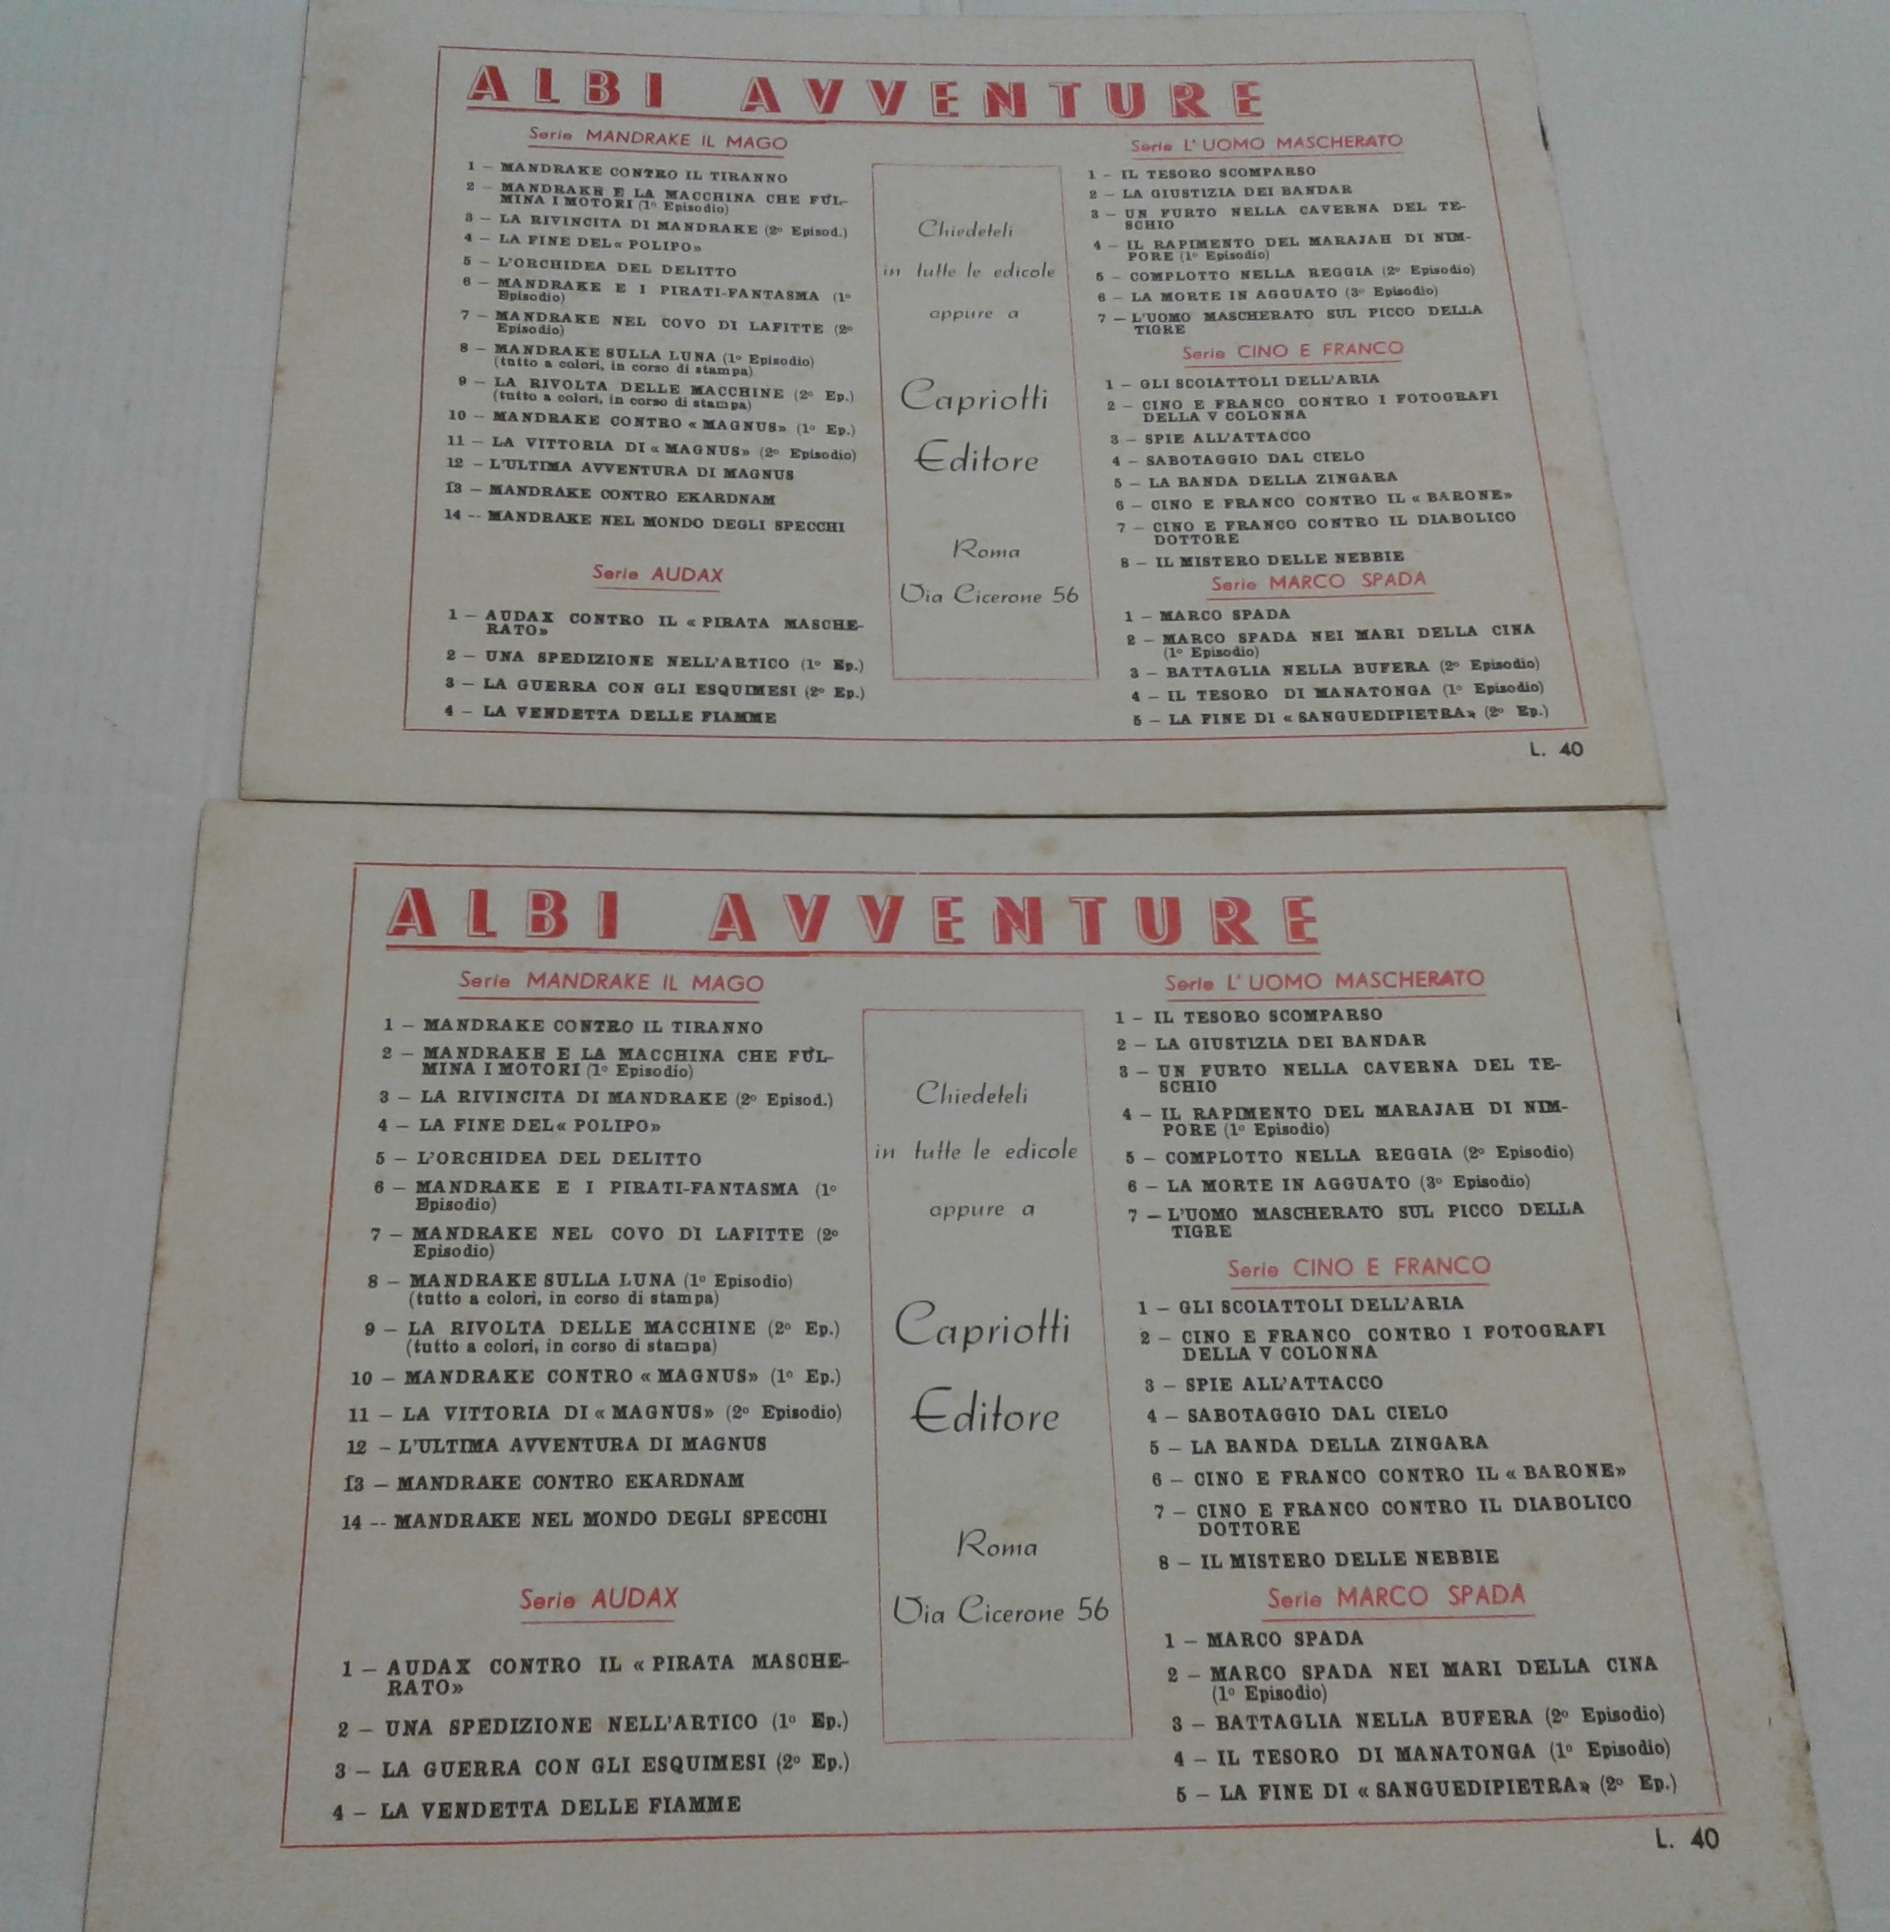 ALBI AVVENTURE
Serie MANDRAKE IL MAGO
1 — MANDRAKE CONTRO IL TIRANNO
2 — MANDRAKE E LA MACCHINA CHE FUL-
MINA I MOTORI (1º Episodio)
3 — LA RIVINCITA DI MANDRAKE (2º Episod.)
4 — LA FINE DEL « POLIPO»
5 — L'ORCHIDEA DEL DELITTO
6 — MANDRAKE E I PIRATI-FANTASMA (1º
Episodio)
7 — MANDRAKE NEL COVO DI LAFITTE (2º
Episodio)
8 — MANDRAKE SULLA LUNA (1º Episodio)
(tutto a colori, in corso di stampa)
9 — LA RIVOLTA DELLE MACCHINE (2º Ep.)
(tutto a colori, in corso di stampa)
10 — MANDRAKE CONTRO « MAGNUS» (1º Ep.)
11 — LA VITTORIA DI « MAGNUS» (2º Episodio)
12 — L'ULTIMA AVVENTURA DI MAGNUS
13 — MANDRAKE CONTRO EKARDNAM
14 -- MANDRAKE NEL MONDO DEGLI SPECCHI
Serie AUDAX
1 — AUDAX CONTRO IL « PIRATA MASCHE-
RATO»
2 — UNA SPEDIZIONE NELL'ARTICO (1º Ep.)
3 — LA GUERRA CON GLI ESQUIMESI (2º Ep.)
4 — LA VENDETTA DELLE FIAMME
Chiedeteli
in tutte le edicole
oppure a
Capriotti
Editore
Roma
Via Cicerone 56
Serie L'UOMO MASCHERATO
1 — IL TESORO SCOMPARSO
2 — LA GIUSTIZIA DEI BANDAR
3 — UN FURTO NELLA CAVERNA DEL TE-
SCHIO
4 — IL RAPIMENTO DEL MARAJAH DI NIM-
PORE (1º Episodio)
5 — COMPLOTTO NELLA REGGIA (2º Episodio)
6 — LA MORTE IN AGGUATO (3º Episodio)
7 — L'UOMO MASCHERATO SUL PICCO DELLA
TIGRE
Serie CINO E FRANCO
1 — GLI SCOIATTOLI DELL'ARIA
2 — CINO E FRANCO CONTRO I FOTOGRAFI
DELLA V COLONNA
3 — SPIE ALL'ATTACCO
4 — SABOTAGGIO DAL CIELO
5 — LA BANDA DELLA ZINGARA
6 — CINO E FRANCO CONTRO IL « BARONE»
7 — CINO E FRANCO CONTRO IL DIABOLICO
DOTTORE
8 — IL MISTERO DELLE NEBBIE
Serie MARCO SPADA
1 — MARCO SPADA
2 — MARCO SPADA NEI MARI DELLA CINA
(1º Episodio)
3 — BATTAGLIA NELLA BUFERA (2º Episodio)
4 — IL TESORO DI MANATONGA (1º Episodio)
5 — LA FINE DI « SANGUEDIPIETRA» (2º Ep.)
L. 40
ALBI AVVENTURE
Serie MANDRAKE IL MAGO
1 — MANDRAKE CONTRO IL TIRANNO
2 — MANDRAKE E LA MACCHINA CHE FUL-
MINA I MOTORI (1º Episodio)
3 — LA RIVINCITA DI MANDRAKE (2º Episod.)
4 — LA FINE DEL « POLIPO»
5 — L'ORCHIDEA DEL DELITTO
6 — MANDRAKE E I PIRATI-FANTASMA (1º
Episodio)
7 — MANDRAKE NEL COVO DI LAFITTE (2º
Episodio)
8 — MANDRAKE SULLA LUNA (1º Episodio)
(tutto a colori, in corso di stampa)
9 — LA RIVOLTA DELLE MACCHINE (2º Ep.)
(tutto a colori, in corso di stampa)
10 — MANDRAKE CONTRO « MAGNUS» (1º Ep.)
11 — LA VITTORIA DI « MAGNUS» (2º Episodio)
12 — L'ULTIMA AVVENTURA DI MAGNUS
13 — MANDRAKE CONTRO EKARDNAM
14 -- MANDRAKE NEL MONDO DEGLI SPECCHI
Serie AUDAX
1 — AUDAX CONTRO IL « PIRATA MASCHE-
RATO»
2 — UNA SPEDIZIONE NELL'ARTICO (1º Ep.)
3 — LA GUERRA CON GLI ESQUIMESI (2º Ep.)
4 — LA VENDETTA DELLE FIAMME
Chiedeteli
in tutte le edicole
oppure a
Capriotti
Editore
Roma
Via Cicerone 56
Serie L'UOMO MASCHERATO
1 — IL TESORO SCOMPARSO
2 — LA GIUSTIZIA DEI BANDAR
3 — UN FURTO NELLA CAVERNA DEL TE-
SCHIO
4 — IL RAPIMENTO DEL MARAJAH DI NIM-
PORE (1º Episodio)
5 — COMPLOTTO NELLA REGGIA (2º Episodio)
6 — LA MORTE IN AGGUATO (3º Episodio)
7 — L'UOMO MASCHERATO SUL PICCO DELLA
TIGRE
Serie CINO E FRANCO
1 — GLI SCOIATTOLI DELL'ARIA
2 — CINO E FRANCO CONTRO I FOTOGRAFI
DELLA V COLONNA
3 — SPIE ALL'ATTACCO
4 — SABOTAGGIO DAL CIELO
5 — LA BANDA DELLA ZINGARA
6 — CINO E FRANCO CONTRO IL « BARONE»
7 — CINO E FRANCO CONTRO IL DIABOLICO
DOTTORE
8 — IL MISTERO DELLE NEBBIE
Serie MARCO SPADA
1 — MARCO SPADA
2 — MARCO SPADA NEI MARI DELLA CINA
(1º Episodio)
3 — BATTAGLIA NELLA BUFERA (2º Episodio)
4 — IL TESORO DI MANATONGA (1º Episodio)
5 — LA FINE DI « SANGUEDIPIETRA» (2º Ep.)
L. 40